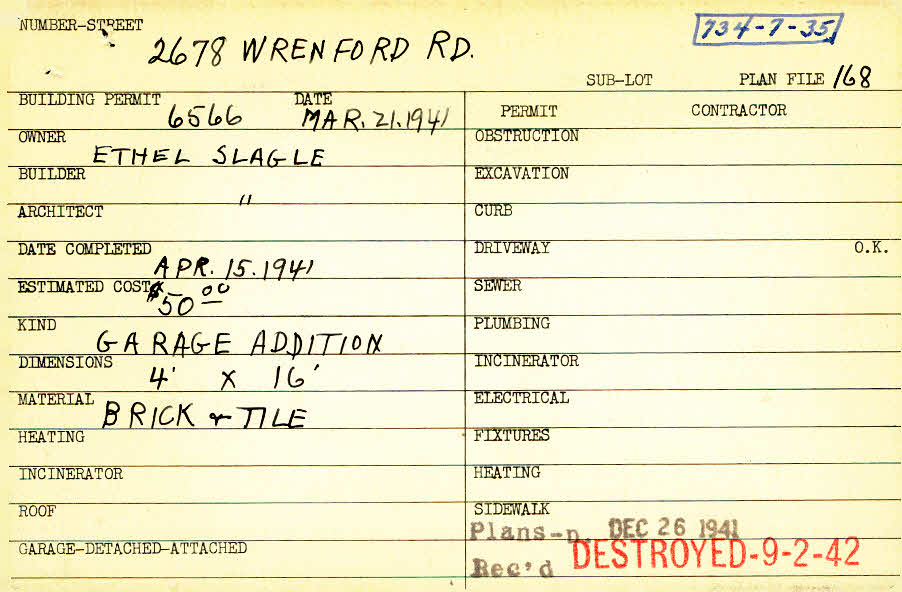 NUMBER-STREET
2678 WRENFORD RD.
734-7-35
SUB-LOT PLAN FILE 168
BUILDING PERMIT 6566 DATE MAR. 21. 1941
PERMIT CONTRACTOR
OWNER ETHEL SLAGLE
OBSTRUCTION
BUILDER "
EXCAVATION
ARCHITECT
CURB
DATE COMPLETED APR. 15. 1941
DRIVEWAY O.K.
ESTIMATED COST $50 00
SEWER
KIND GARAGE ADDITION
PLUMBING
DIMENSIONS 4' X 16'
INCINERATOR
MATERIAL BRICK & TILE
ELECTRICAL
HEATING
FIXTURES
INCINERATOR
HEATING
ROOF
SIDEWALK
Plans-n. DEC 26 1941
GARAGE-DETACHED-ATTACHED
Rec'd DESTROYED-9-2-42